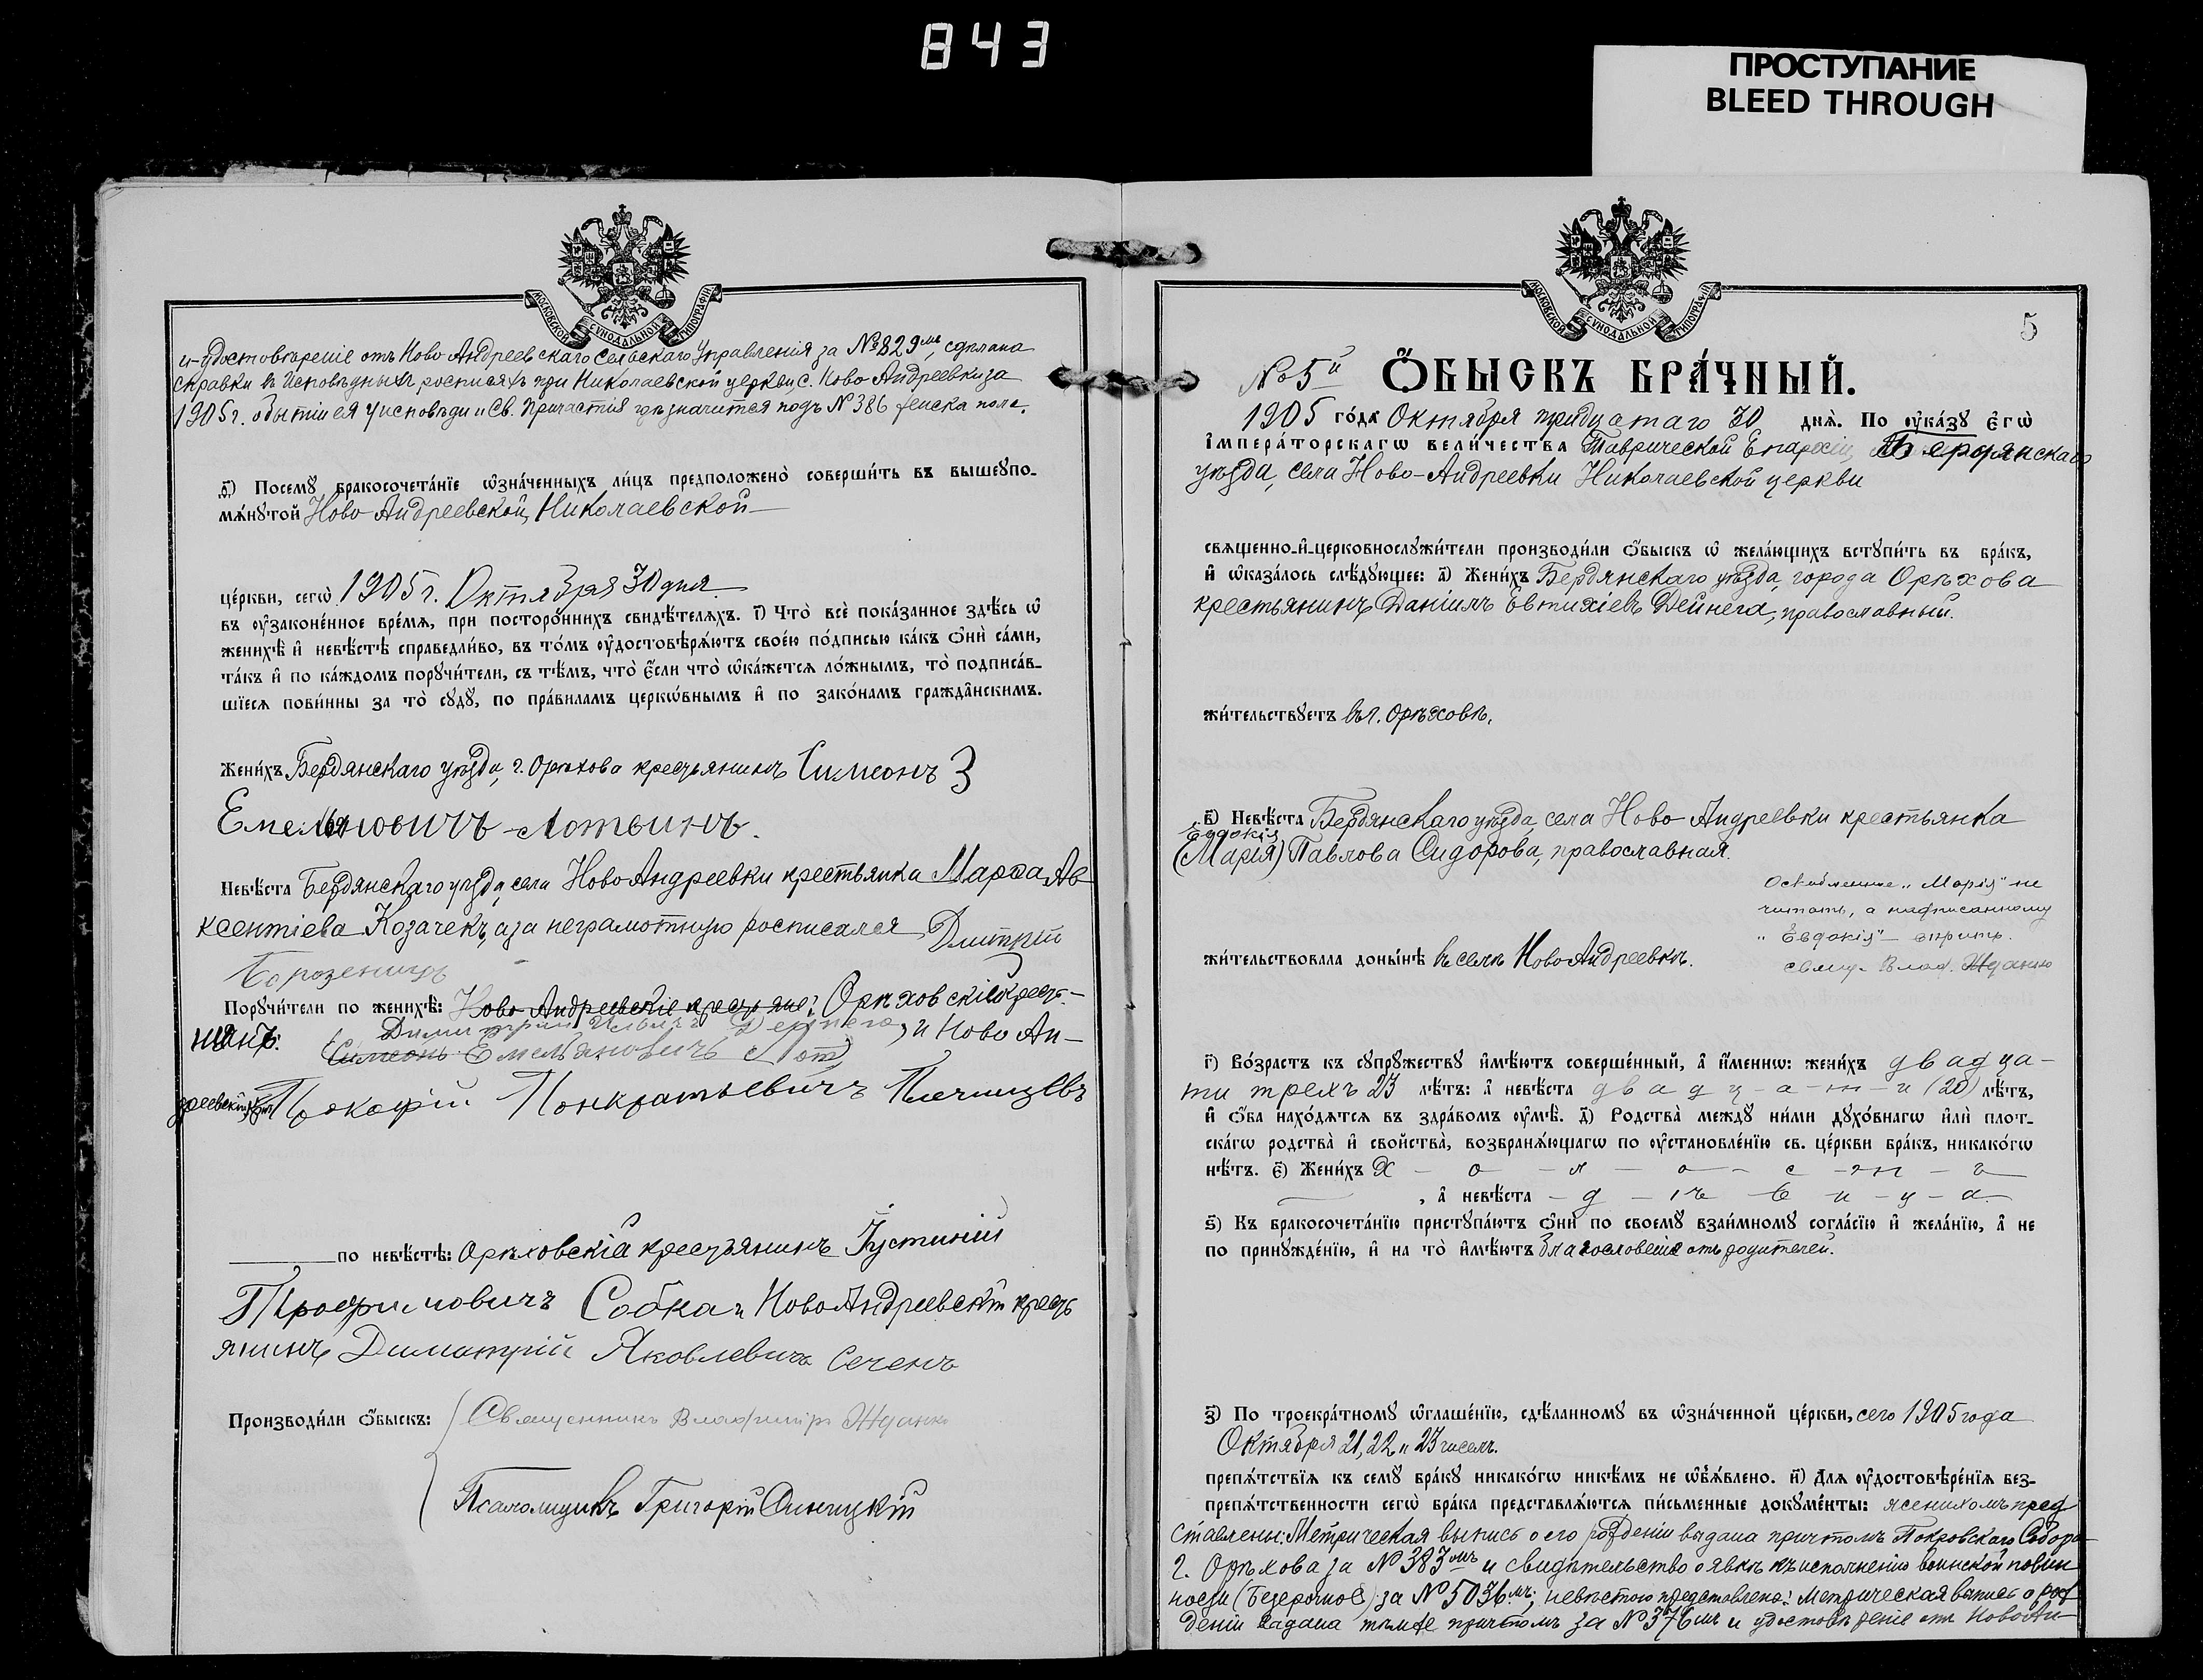 843
ПРОСТУПАНИЕ
BLEED THROUGH
МОСКОВСКОЙ СѴНОДАЛЬНОЙ ТИПОГРАФІИ
и удостовѣреніе отъ Ново Андреевскаго Сельскаго Управленія за № 829мъ, сдѣлана
справка въ Исповѣдныхъ росписяхъ при Николаевской церкви, с. Ново-Андреевки за
1905 г. о бытіи ея у исповѣди и Св. Причастія гдѣ значится подъ № 386 женска пола.
в҃і) Посемꙋ̀ бракосочета́нїе ѡ҆зна́ченныхъ ли́цъ предположено̀ соверши́ть въ вышеꙋпо-
мѧ́нꙋтой Ново Андреевской, Николаевской
це́ркви, сегѡ̀ 1905 г. Октября 30 дня
въ ᲂу҆зако́ненное вре́мѧ, при посторо́ннихъ свидѣ́телѧхъ. і҃) Что̀ всѐ пока́занное здѣ́сь ѡ҆
женихѣ̀ и҆ невѣ́стѣ справедли́во, въ то́мъ ᲂу҆достовѣрѧ́ютъ свое́ю по́дписью ка́къ ѻ҆нѝ са́ми,
та́къ и҆ по ка́ждомъ порꙋчи́тели, съ тѣ́мъ, что̀ є҆́сли что̀ ѡ҆ка́жетсѧ ло́жнымъ, то̀ подписа́в-
шїесѧ пови́нны за то̀ сꙋдꙋ̀, по пра́виламъ церко́внымъ и҆ по зако́намъ гражда́нскимъ.
Жени́хъ Бердянскаго уѣзда, г. Орѣхова крестьянинъ Симеонъ
Емельяновичъ Лотвинъ.
Невѣ́ста Бердянскаго уѣзда, села Ново Андреевки крестьянка Марѳа Ав
ксентіева Козачекъ, а за неграмотную росписался Дмитрій
Порꙋчи́тели по женихѣ̀: Ново-Андреевскіе крестьяне: Орѣховскій кресть-
янинъ: Димитрій и Ново Ан-
Симеонъ Емельяновичъ Лот
дреевскій Прокофій Понкратьевичъ
по невѣ́стѣ: Орѣховскій крестьянинъ Іустиній
Трофимовичъ Собка и Ново Андреевскій кресть
янинъ Димитрій Яковлевичъ Сеченъ
Производи́ли ѻ҆́быскъ: Священникъ Владимиръ Жданко
Псаломщикъ Григорій Синицкій
МОСКОВСКОЙ СѴНОДАЛЬНОЙ ТИПОГРАФІИ
5
№ 5й ѺБЫСКЪ БРА́ЧНЫЙ.
1905 го́да Октября тридцатаго 30 днѧ̀. По ᲂу҆ка́зꙋ є҆гѡ̀
і҆мпера́торскагѡ вели́чества Таврической Епархіи, Бердянскаго
уѣзда, села Ново-Андреевки Николаевской церкви
свѧщенно-и҆-церковнослꙋжи́тели производи́ли ѻ҆́быскъ ѡ҆ жела́ющихъ встꙋпи́ть въ бра́къ,
и҆ ѡ҆каза́лось слѣ́дꙋющее: а҃) Жени́хъ Бердянскаго уѣзда, города Орѣхова
крестьянинъ Даніилъ Евтихіевъ Дейнега, православный.
жи́тельствꙋетъ въ г. Орѣховѣ.
в҃) Невѣ́ста Бердянскаго уѣзда, села Ново-Андреевки крестьянка
Евдокія
(Марія) Павлова Сидорова, православная.
„Марія" не
читать, а надписанному
„Евдокія" – вѣрить.
Свящ. Влад. Жданко
жи́тельствовала доны́нѣ въ селѣ Ново Андреевкѣ.
г҃) Во́зрастъ къ сꙋпрꙋ́жествꙋ и҆мѣ́ютъ соверше́нный, а҆ и҆́меннѡ: жени́хъ двадца-
ти трехъ 23 лѣ́тъ: а҆ невѣ́ста д в а д ц - а - т - и (20) лѣ́тъ,
и҆ ѻ҆́ба нахо́дѧтсѧ въ здра́вомъ ᲂу҆мѣ̀. д҃) Родства̀ междꙋ̀ ни́ми дꙋхо́внагѡ и҆лѝ плот-
ска́гѡ родства̀ и҆ сво́йства̀, возбранѧ́ющагѡ по ᲂу҆становле́нїю св. це́ркви бра́къ, никако́гѡ
нѣ́тъ. є҃) Жени́хъ Х - о - л - о - с - т - ъ
, а҆ невѣ́ста - д - ѣ - в - и - ц - а.
ѕ҃) Къ бракосочета́нїю пристꙋпа́ютъ ѻ҆нѝ по своемꙋ̀ взаи́мномꙋ согла́сїю и҆ жела́нїю, а҆ не
по принꙋжде́нїю, и҆ на то̀ и҆мѣ́ютъ благословеніе отъ родителей.
з҃) По троекра́тномꙋ ѡ҆глаше́нїю, сдѣ́ланномꙋ въ ѡ҆зна́ченной це́ркви, сего 1905 года
Октября 21, 22 и 23 чиселъ.
препѧ́тствїѧ къ семꙋ̀ бра́кꙋ никако́гѡ никѣ́мъ не ѡ҆б̾ѧ́влено. и҃) Длѧ ᲂу҆достовѣре́нїѧ без-
препѧ́тственности сегѡ̀ бра́ка представлѧ́ютсѧ пи́сьменные докꙋме́нты: женихомъ пред
ставлены: Метрическая выпись о его рожденіи выдана причтомъ Покровскаго Собора
г. Орѣхова за № 383мъ и свидѣтельство о явкѣ къ исполненію воинской повин
ности (Безсрочное) за № 5036мъ; невѣстою представлено: Метрическая выпись о рож
деніи выдана тѣмже причтомъ за № 376мъ и удостовѣреніе отъ Ново Ан-